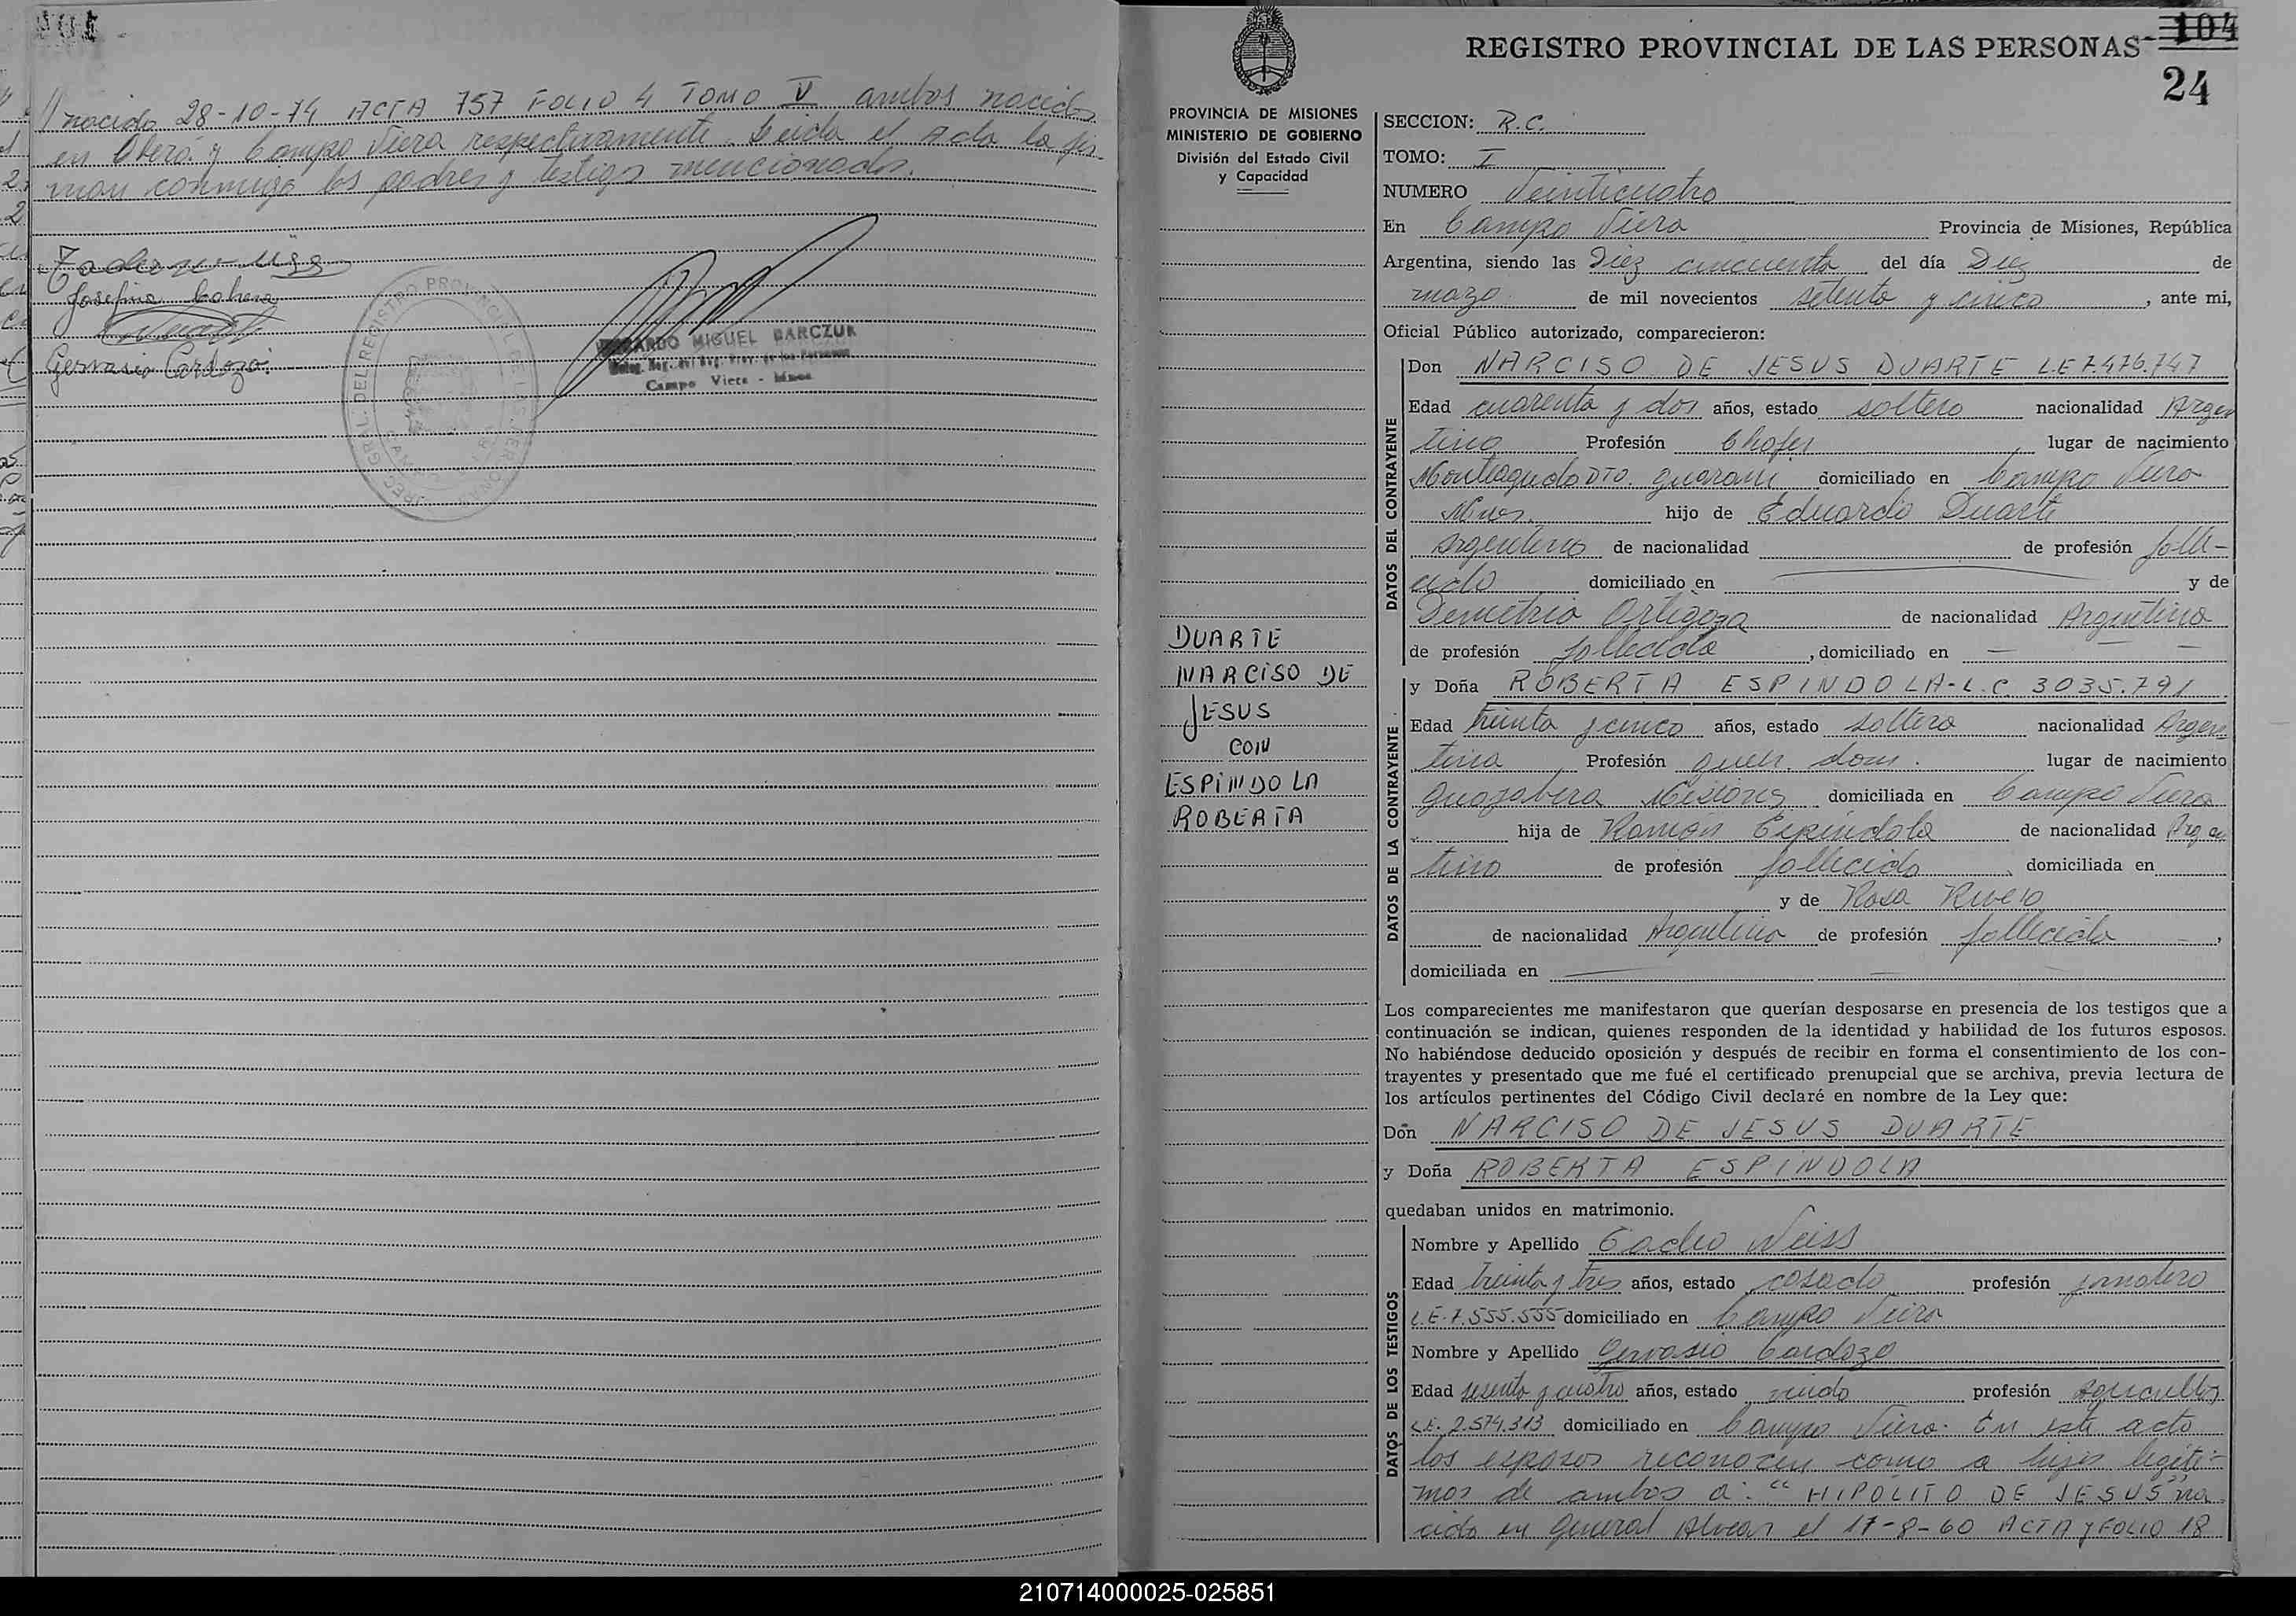 // nacido 28-10-74 ACTA 757 FOLIO 4 TOMO V ambos nacidos
en Oberá y Campo Viera respectivamente. Leida el Acta la fir-
man conmigo los padres y testigos mencionados.
Josefina
Gervasio Cardozo
MIGUEL BARCZUK
Campo Viera - Mnes
REGISTRO PROVINCIAL DE LAS PERSONAS
104
24
PROVINCIA DE MISIONES
MINISTERIO DE GOBIERNO
División del Estado Civil
y Capacidad
DUARTE
NARCISO DE
JESUS
CON
ESPINDOLA
ROBERTA
SECCION: R.C.
TOMO: I
NUMERO Veinticuatro
En Campo Viera Provincia de Misiones, República
Argentina, siendo las Diez cincuenta del día Diez de
marzo de mil novecientos setenta y cinco, ante mi,
Oficial Público autorizado, comparecieron:
DATOS DEL CONTRAYENTE
Don NARCISO DE JESUS DUARTE L.E 7.476.747
Edad cuarenta y dos años, estado soltero nacionalidad Argen
tina Profesión Chofer lugar de nacimiento
Monteagudo DTO. Guarani domiciliado en Campo Viera
Mnes. hijo de Eduardo Duarte
Argentino de nacionalidad de profesión falle-
cido domiciliado en y de
Demetria Ortigoza de nacionalidad Argentina
de profesión fallecida, domiciliado en — —
DATOS DE LA CONTRAYENTE
y Doña ROBERTA ESPINDOLA-L.C. 3035.791
Edad treinta y cinco años, estado soltera nacionalidad Argen
tina Profesión queh. dom. lugar de nacimiento
Misiones domiciliada en Campo Viera
hija de Ramón Espíndola de nacionalidad Argen
tino de profesión fallecido, domiciliada en
y de Rosa Rivero
de nacionalidad Argentina de profesión fallecida,
domiciliada en
Los comparecientes me manifestaron que querían desposarse en presencia de los testigos que a
continuación se indican, quienes responden de la identidad y habilidad de los futuros esposos.
No habiéndose deducido oposición y después de recibir en forma el consentimiento de los con-
trayentes y presentado que me fué el certificado prenupcial que se archiva, previa lectura de
los artículos pertinentes del Código Civil declaré en nombre de la Ley que:
Don NARCISO DE JESUS DUARTE
y Doña ROBERTA ESPINDOLA
quedaban unidos en matrimonio.
DATOS DE LOS TESTIGOS
Nombre y Apellido Tadeo Weiss
Edad treinta y tres años, estado casado profesión
L.E-7.555.555 domiciliado en Campo Viera
Nombre y Apellido Gervasio Cardozo
Edad sesenta y cuatro años, estado viudo profesión Agricultor
L.E. 2.574.313 domiciliado en Campo Viera. En este acto
los esposos reconocen como a hijos legíti-
mos de ambos a: "HIPOLITO DE JESUS" na-
cido en General Alvear el 17-8-60 ACTA y FOLIO 18
210714000025-025851